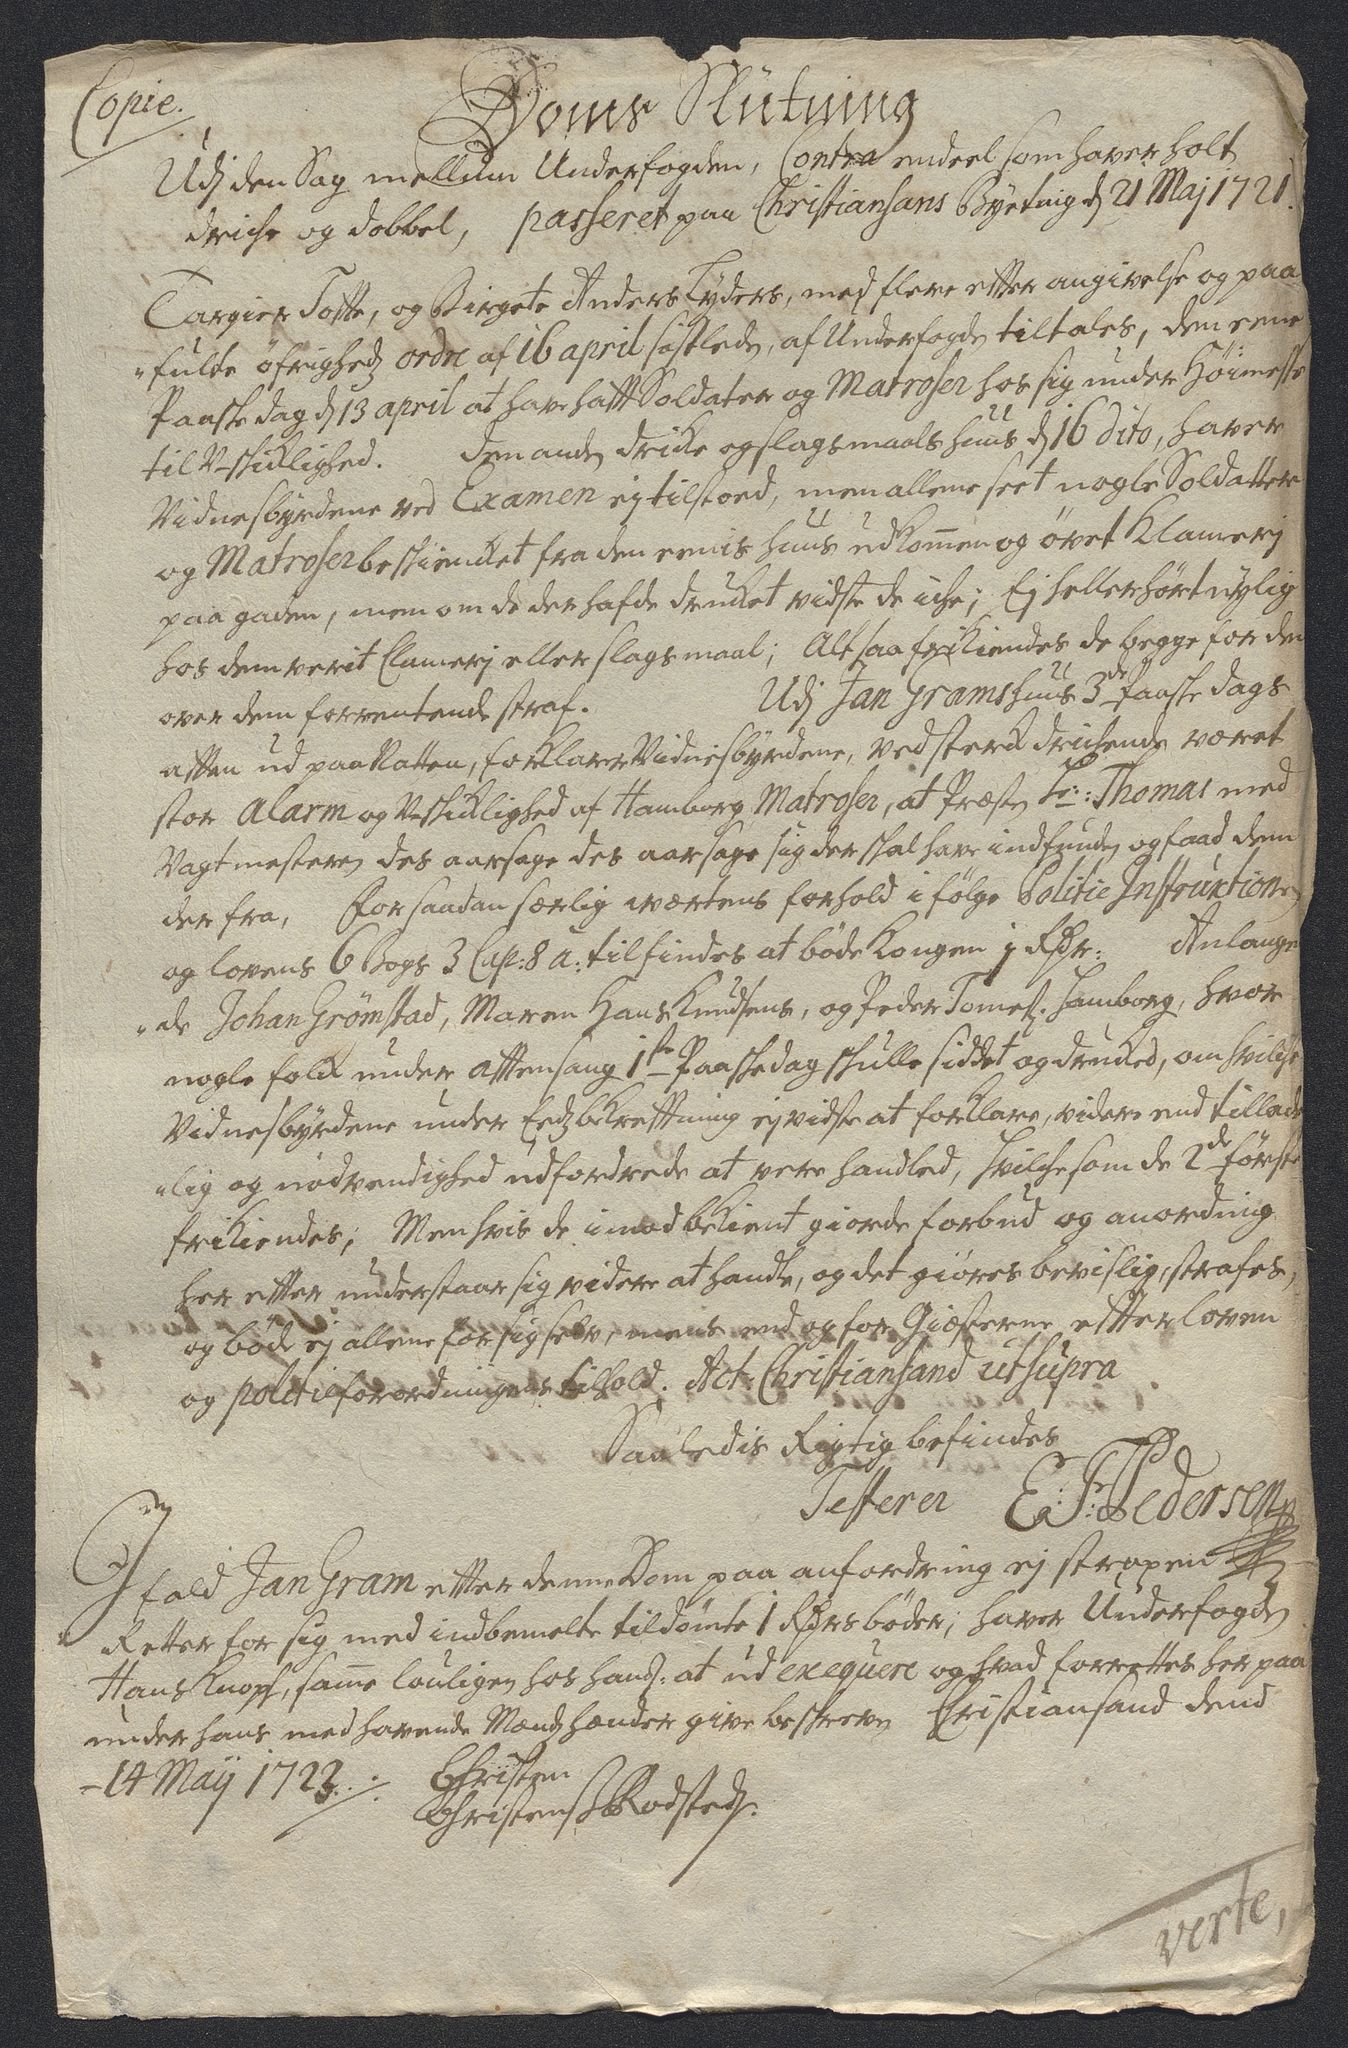 Copie.
Doms Slutning
Udj den Sag mellum Underfogden, Contra endeel som haver holt
driche og dobbel, passeret paa Christiansans Byeting d 21 Maj 1721.
Targier Toffte, og Birgete Anders Tyders, med flere effter angivelse og paa
"fulte öfrigheds ordre af 16 april sistleden, af Underfogden tiltales, den eene
Paaske dag d 13 april at have hafft Soldater og Matroser hos sig under Höimesse
til U-skicklighed. den anden dricke og slagsmaals huus d 16 dito, haver
Vidnesbyrdene ved Examen ej tilstoed, men allene seet nogle Soldatter
og Matroser beskiencket fra den eenis huus udkommen og övet Klamerj
paa gaden, men om de der hafde drucket vidste de iche; Ej heller hört nylig
hos dem verit Clamerj eller slagsmaal; Altsaa frikiendes de begge for den
over dem forventende straf. Udj Jan Grams huus 3de Paaske dags
afften ud paa Natten, forklarer Vidnesbyrdene, ved sterck drickende været
stor Alarm og U-skicklighed af Hamborg Matroser, at Præsten Hr: Thomas med
Vagtmesteren des aarsage des aarsage sig der skal have indfunden og faad dem
der fra, for saadan særlig værtens forhold i fölge Politie Instruxtionen
og lovens 6 Bogs 3 Cap: 8 a: tilfindes at böde Kongen 1 Rdr: Anlangen
"de Johan Grömstad, Maren Hans Knudsens, og Peder Tomes: Hamborg, hvor
nogle folck under afftensang 1ste Paaskedag skulle siddet og drucked, om hvilche
Vidnesbyrdene under Eeds bekrefftning ej vidste at forklare, videre end tillade
"lig og nödvendighed udfordrede at vere handled, hvilche som de 2de förste
frikiendes; Men hvis de imod bekient giorde forbud og anordning
her effter understaar sig videre at handle, og det giöres bevislig, strafes,
og böde ej allene for sig selv, mens end og for Giæsterne effter loven
og politie forordningens tilhold. Act: Christiansand ut supra
Saaledis Rigtig befindes
Testerer E: P: Pedersen
I fald Jan Gram effter denne Dom paa anfordring ej strax en
Retter for sig med indbemelte tildömte 1 Rdrs böder; haver Underfogden
Hans Knopf, samme louligen hos hannem at ud exequere og hvad forrettes her paa
under hans med havende Mænds hænder give beskreven Christiansand dend
-14 Maij 1722.
Christen
Christens Rodsteds.
verte,